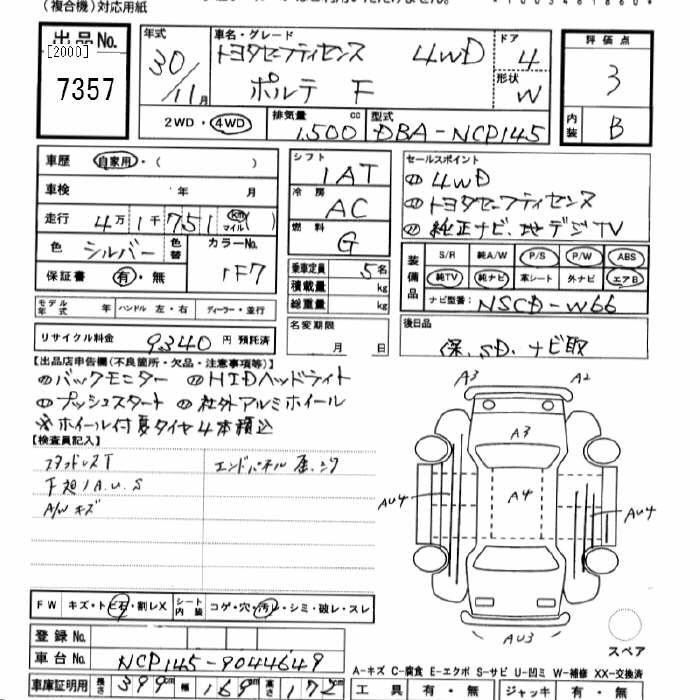 (複合機)対応用紙
出品No.
[2000]
7357
年式
30/11月
車名・グレード
トヨタセーフティセンス 4WD
ポルテ F
ドア
4
形状
W
評価点
3
内装
B
2WD・4WD
排気量 cc
1500
型式
DBA-NCP145
車歴 自家用・( )
車検 年 月
走行 4万1千751 km マイル ( )
色 シルバー 色替
カラーNo.
1F7
保証書 有・無
モデル年式 年 ハンドル 左・右 ディーラー・並行
リサイクル料金 9340 円 預託済
シフト
1AT
冷房
AC
燃料
G
乗車定員 5名
積載量 kg
総重量 kg
名変期限
月 日
セールスポイント
4WD
トヨタセーフティセンス
純正ナビ、地デジTV
装備品
S/R 純A/W P/S P/W ABS
純TV 純ナビ 革シート 外ナビ エアB
ナビ型番: NSCD-W66
後日品
保、SD、ナビ取
【出品店申告欄(不良箇所・欠品・注意事項等)】
バックモニター HIDヘッドライト
プッシュスタート 社外アルミホイール
※ホイール付夏タイヤ4本積込
【検査員記入】
スタッドレスT エンドパネル
A/W キズ
A3 A2
A3
A4
AU4 AU4
AU3
スペア
FW キズ・トビ石・割レX シート内装 コゲ・穴・汚レ・シミ・破レ・スレ
登録No.
車台No. NCP145-9044649
車庫証明用 長さ 399cm 幅 169cm 高さ 172cm
A-キズ C-腐食 E-エクボ S-サビ U-凹ミ W-補修 XX-交換済
工具 有・無 ジャッキ 有・無